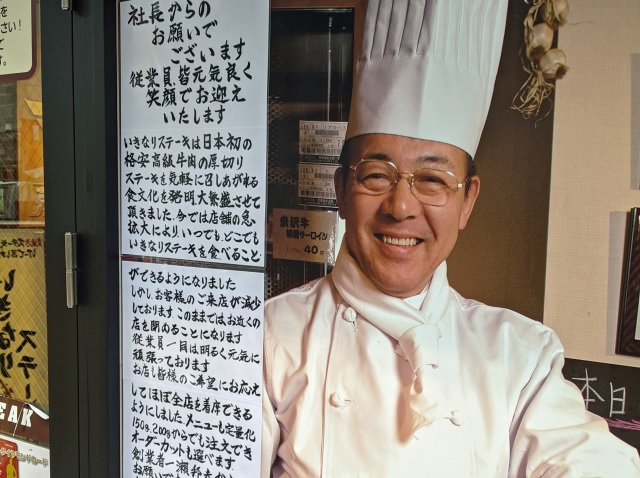 社長からの
お願いで
ございます
従業員、皆元気良く
笑顔でお迎え
いたします
いきなりステーキは日本初の
格安高級牛肉の厚切り
ステーキを気軽に召しあがれる
食文化を発明、大繁盛させて
頂きました。今では店舗の急
拡大により、いつでも、どこでも
いきなりステーキを食べること
ができるようになりました
しかし、お客様のご来店が減少
しております このままではお近くの
店を閉めることになります
従業員一同は明るく元気に
頑張っております
お店も皆様のご希望にお応え
してほぼ全店を着席できる
ようにしました。メニューも定量化
150g、200gからでも注文でき
オーダーカットも選べます
創業者一瀬邦夫から
お願いで
米沢牛
40
本日
EAK